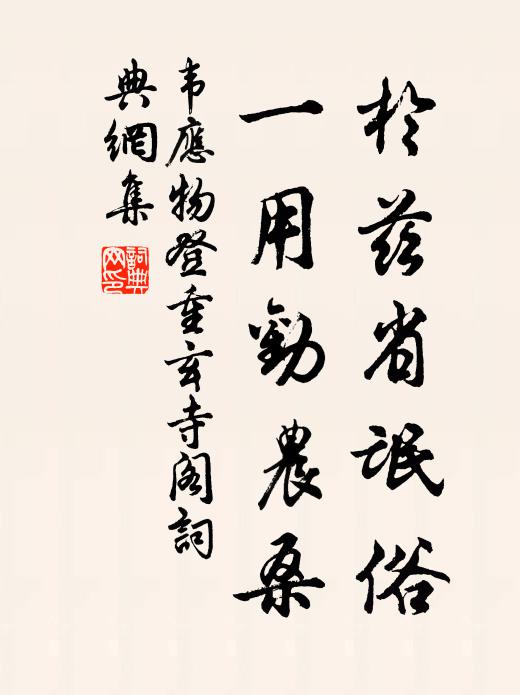 於茲省氓俗
一用勸農桑
韦應物登重玄寺阁詞
典網集
詞典
网印